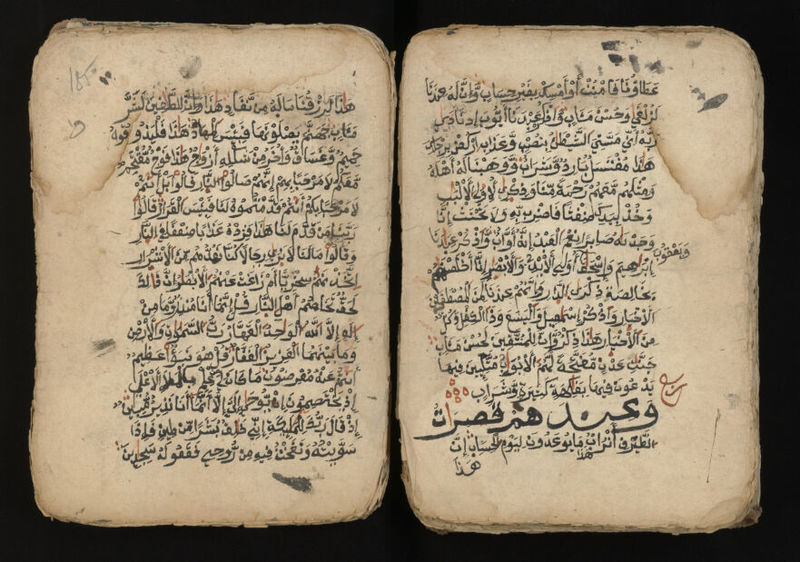 عطاؤنا فامنن أو أمسك بغير حساب وإن له عندنا
لزلفى وحسن مئاب واذكر عبدنا أيوب إذ نادى
ربه أني مسني الشيطن بنصب وعذاب اركض برجلك
هذا مغتسل بارد وشراب ووهبنا له أهله
ومثلهم معهم رحمة منا وذكرى لأولي الألبب
وخذ بيدك ضغثا فاضرب به ولا تحنث إنا
وجدنه صابرا نعم العبد إنه أواب واذكر عبدنا
إبرهيم وإسحق ويعقوب أولي الأيدي والأبصر إنا أخلصنهم
بخالصة ذكرى الدار وإنهم عندنا لمن المصطفين
الأخيار واذكر إسمعيل واليسع وذا الكفل وكل
من الأخيار هذا ذكر وإن للمتقين لحسن مئاب
جنت عدن مفتحة لهم الأبوب متكئين فيها
يدعون فيها بفكهة كثيرة وشراب
وعندهم قصرات
الطرف أتراب هذا ما توعدون ليوم الحساب إن
هذا
هذا لرزقنا ما له من نفاد هذا وإن للطغين لشر
مئاب جهنم يصلونها فبئس المهاد هذا فليذوقوه
حميم وغساق وءاخر من شكله أزوج هذا فوج مقتحم
معكم لا مرحبا بهم إنهم صالوا النار قالوا بل أنتم
لا مرحبا بكم أنتم قدمتموه لنا فبئس القرار قالوا
ربنا من قدم لنا هذا فزده عذابا ضعفا في النار
وقالوا ما لنا لا نرى رجالا كنا نعدهم من الأشرار
أتخذنهم سخريا أم زاغت عنهم الأبصر إن ذلك
لحق تخاصم أهل النار قل إنما أنا منذر وما من
إله إلا الله الوحد القهار رب السموت والأرض
وما بينهما العزيز الغفر قل هو نبؤا عظيم
أنتم عنه معرضون ما كان لي من علم بالملإ الأعلى
إذ يختصمون إن يوحى إلي إلا أنما أنا نذير مبين
إذ قال ربك للملئكة إني خلق بشرا من طين فإذا
سويته ونفخت فيه من روحي فقعوا له سجدين